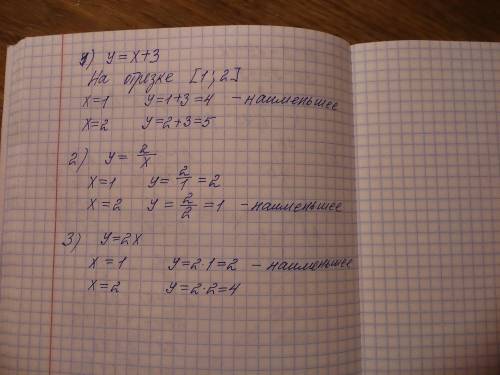 1) y = x+3
На отрезке [1; 2]
x=1 y=1+3=4 – наименьшее
x=2 y=2+3=5
2) y = 2/x
x=1 y= 2/1 =2
x=2 y= 2/2 =1 – наименьшее
3) y=2x
x=1 y=2·1=2 – наименьшее
x=2 y=2·2=4